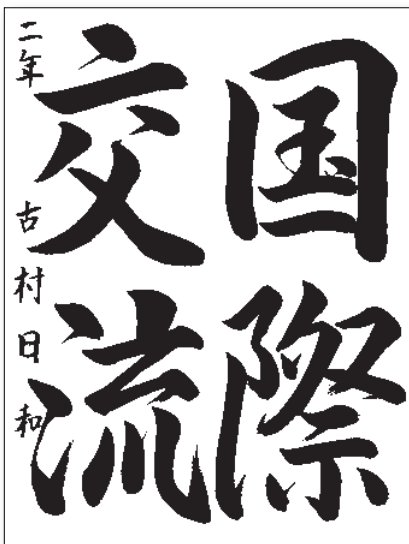 国際
交流
二年 古村日和